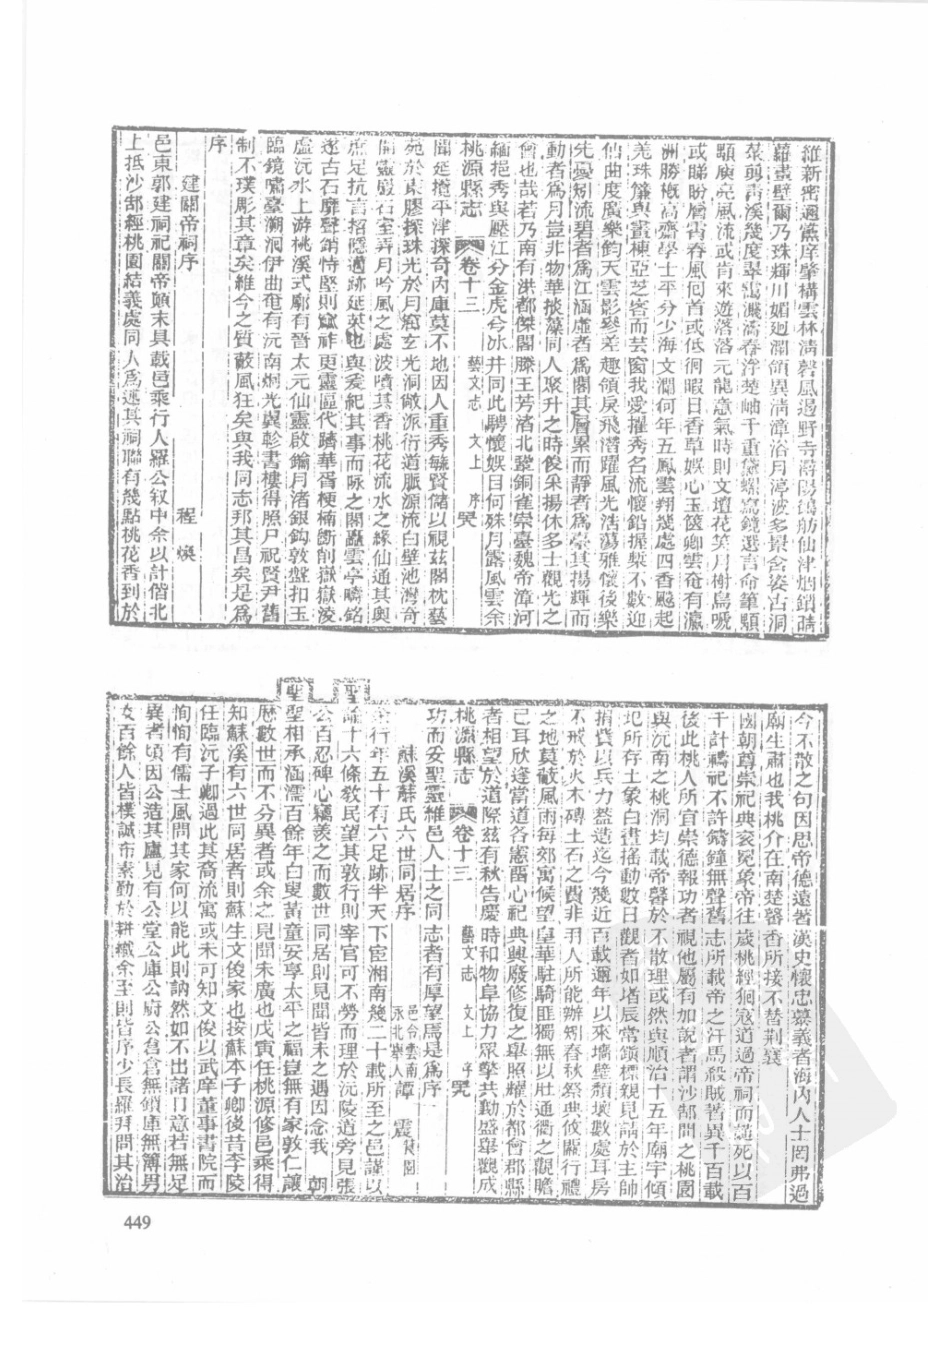 維新密邇燕岸肇構雲林淸磬風過野寺潯陽鴻舫仙津烟鎖晴
蘿畫壁爾乃珠輝川媚迴瀾領異淸漳浴月渟波多景含姿古洞
風流或肯來遊落落元龍意氣時則文壇花笑月樹鳥
或睇盼層霄春風何首或低徊暇日香草娛心玉篋卿雲奄有瀛
洲勝槪高齋學士平分少海文瀾何年五鳳雲翔幾處四香颷起
羌珠簾與畫棟亞芝窗而芸窗我愛擢秀名流懷鉛握槧不數迎
仙曲度廣樂鈞天雲影參差趣領戾飛潛躍風光活潑雅懷後樂
先憂矧流碧者爲江涵虛者爲閣其層累而靜者爲崇其揚輝而
動者爲月豈非物華掞藻同人聚升之時俊采揚休多士觀光之
會也哉若乃南有洪都傑閣滕王芳滀北鞏銅雀崇臺魏帝漳河
緬挹秀與壓江分金虎兮冰井同此騁懷娛目何殊月露風雲余
桃源縣志 卷十三 藝文志 文上 序
聞延壇平津探奇內庫莫不地因人重秀毓賢儲以視茲閣枕藝
苑於東膠探珠光於月窟玄光洞敞派衍道脈源流白壁池灣奇
開靈巖石室弄月吟風之處波噴其香桃花流水之緣仙通其奧
庶足抗言招隱遁跡延英也與爰紀其事而咏之閣矗雲亭疇銘
遂古石扉聲銷恃堅則 祚更靈區代躋華胥梗楠斷削嶽嶽淩
虛沅水上游桃溪式廓有晉太元仙靈啟鑰月渚銀鈎敦盤扣玉
臨鏡嘯臺瀾洄伊曲奄有沅南炯光翼軫書樓得照尸祝賢尹舊
制不璞彫其章矣維今之質蔽風狂矣與我同志邦其昌矣是爲
序
建關帝祠序 程煥
邑東郭建祠祀關帝顛末具載邑乘行人羅公叙中余以計偕北
上抵沙郜經桃園結義處同人爲述其祠聯有幾點桃花香到於
今不散之句因思帝德遠
廟生肅也我桃介在南楚
漢史懷忠慕義者海內人士罔弗過
香所接不替荆襄
國朝尊崇祀典袞冕象帝往歲桃經徊寇道過帝祠而薨死以百
千計禱祀不許鑄鐘無聲舊志所載帝之汗馬殺賊著異千百載
後此桃人所宜崇德報功者視他屬有加說者謂沙郜間之桃園
與沅南之桃洞均載帝響於不散理或然與順治十五年廟宇傾
圮所存土象白晝搖動數日觀者如堵辰常鎭標親見請於主帥
捐貲以兵力葢造迄今幾近百載邇年以來墻壁頹壞數處耳房
不戒於火木磚土石之費非一人所能辦矧春秋祭典攸關行禮
之地莫蔽風雨每郊寓候望皇華駐騎匪獨無以壯通衢之觀瞻
己耳欣逢當道各憲留心祀典興廢修復之舉照耀於都會郡縣
者相望於道際茲有秋告慶時和物阜協力眾擎共勷盛舉觀成
桃源縣志 卷十三 藝文志 文上 序
功而妥聖靈維邑人士之同志者有厚望焉是爲序
蘇溪蘇氏六世同居序 邑令雲南永北舉人譚震
余行年五十有六足跡半天下宦湘南幾二十載所至之邑謹以
聖諭十六條敎民望其敦行則宰官可不勞而理於沅陵道旁見張
公百忍碑心竊羨之而數世同居則見聞皆未之遇因念我 朝
聖聖相承涵濡百餘年白叟黃童安享太平之福豈無有家敦仁讓
歷數世而不分異者或余之見聞未廣也戊寅任桃源修邑乘得
知蘇溪有六世同居者則蘇生文俊家也按蘇本子卿後昔李陵
任臨沅子卿過此其裔流寓或未可知文俊以武庠董事書院而
恂恂有儒士風問其家何以能此則訥然如不出諸口意若無足
異者頃因公造其廬見有公堂公庫公廚公倉倉無鎖庫無簿男
女百餘人皆樸誠布素勤於耕織余至則皆序少長羅拜問其治
449